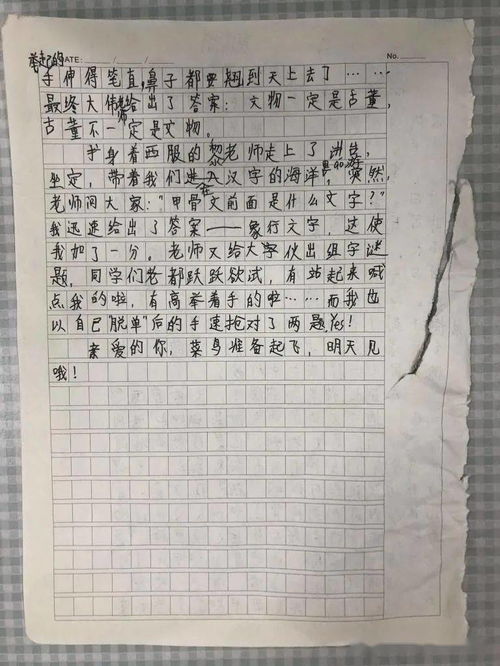 举起的 DATE: / / No.
手伸得笔直,鼻子都要翘到天上去了……
最终大伟老师给出了答案:文物一定是古董,
古董不一定是文物。
身着西服的黎老师走上了讲台,
坐定,带着我们进入在汉字的海洋里的游,突然,
老师问大家:“甲骨文前面是什么文字?”
我迅速给出了答案——象行文字,这使
我加了一分。老师又给大家伙出组字谜
题,同学们老都跃跃欲试,有站起来喊
点我的啦,有高举着手的啦……而我也
以自己“脱单”后的手速抢对了两题,Yes!
亲爱的你,菜鸟准备起飞,明天见
哦!